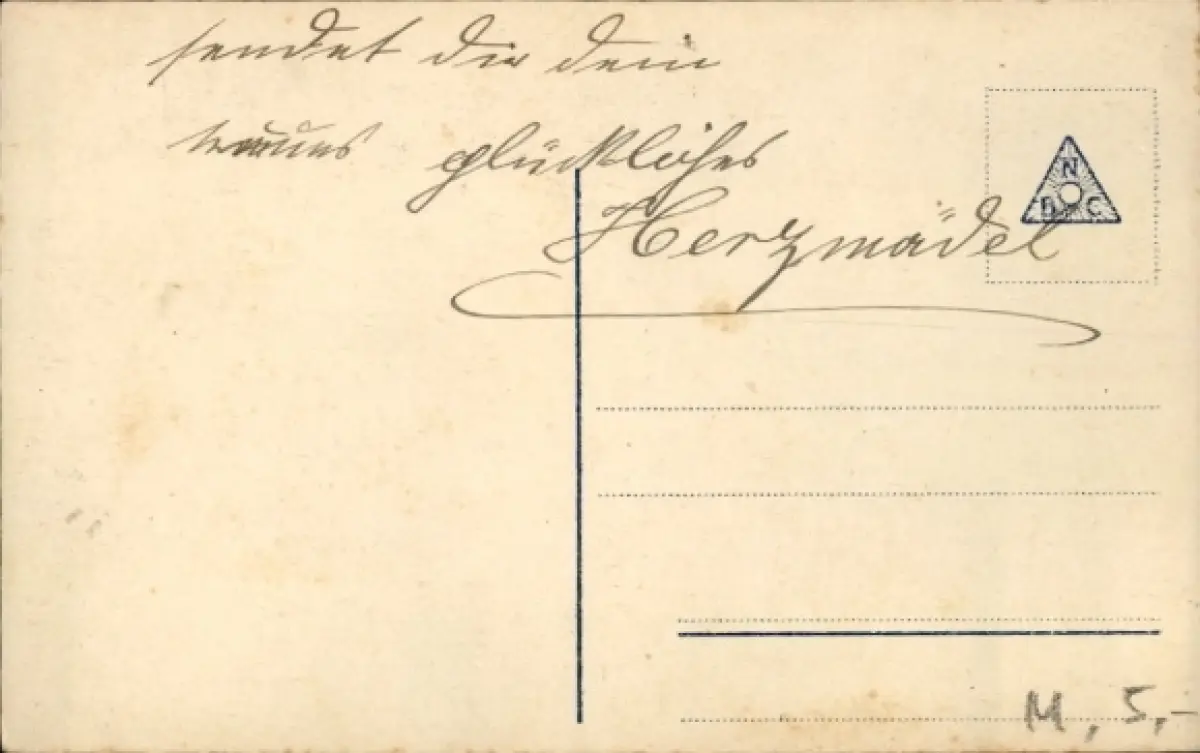 sendet dir dein
treues glückliches
Herzmädel
N
B C
M, 5,-